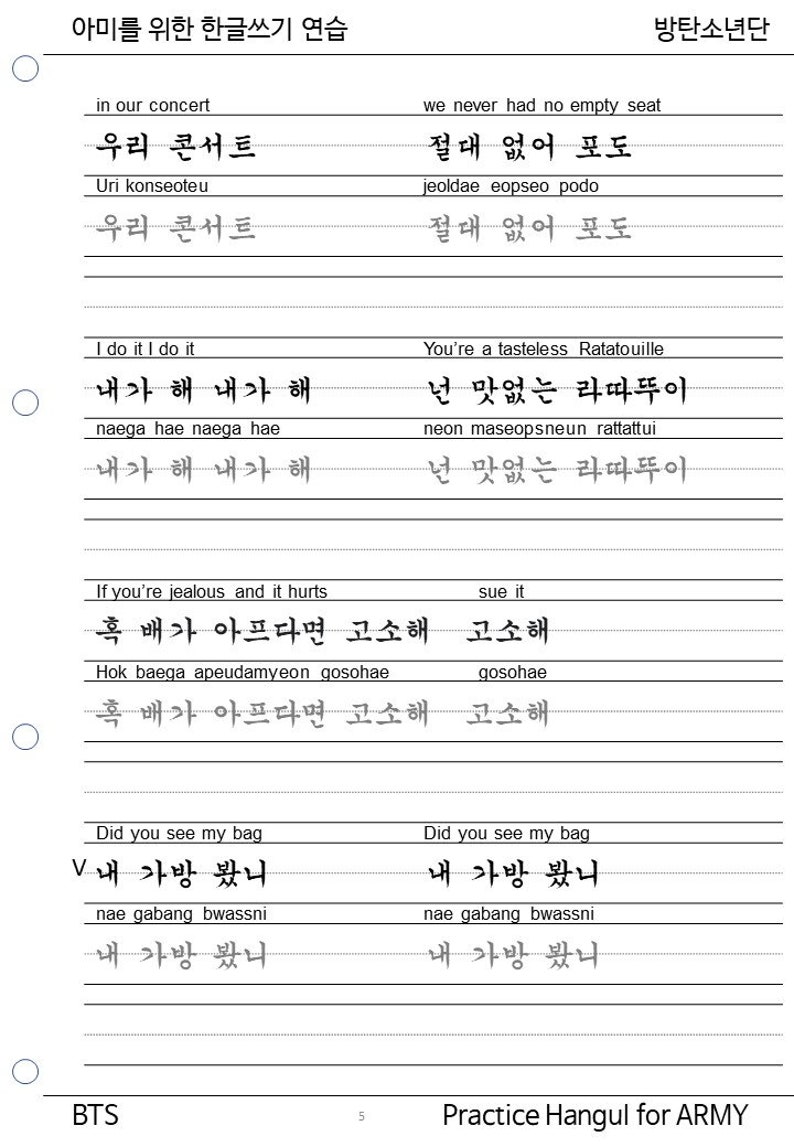 아미를 위한 한글쓰기 연습 방탄소년단
in our concert we never had no empty seat
우리 콘서트 절대 없어 포도
Uri konseoteu jeoldae eopseo podo
우리 콘서트 절대 없어 포도
I do it I do it You're a tasteless Ratatouille
내가 해 내가 해 넌 맛없는 라따뚜이
naega hae naega hae neon maseopsneun rattattui
내가 해 내가 해 넌 맛없는 라따뚜이
If you're jealous and it hurts sue it
혹 배가 아프다면 고소해 고소해
Hok baega apeudamyeon gosohae gosohae
혹 배가 아프다면 고소해 고소해
Did you see my bag Did you see my bag
V 내 가방 봤니 내 가방 봤니
nae gabang bwassni nae gabang bwassni
내 가방 봤니 내 가방 봤니
BTS 5 Practice Hangul for ARMY